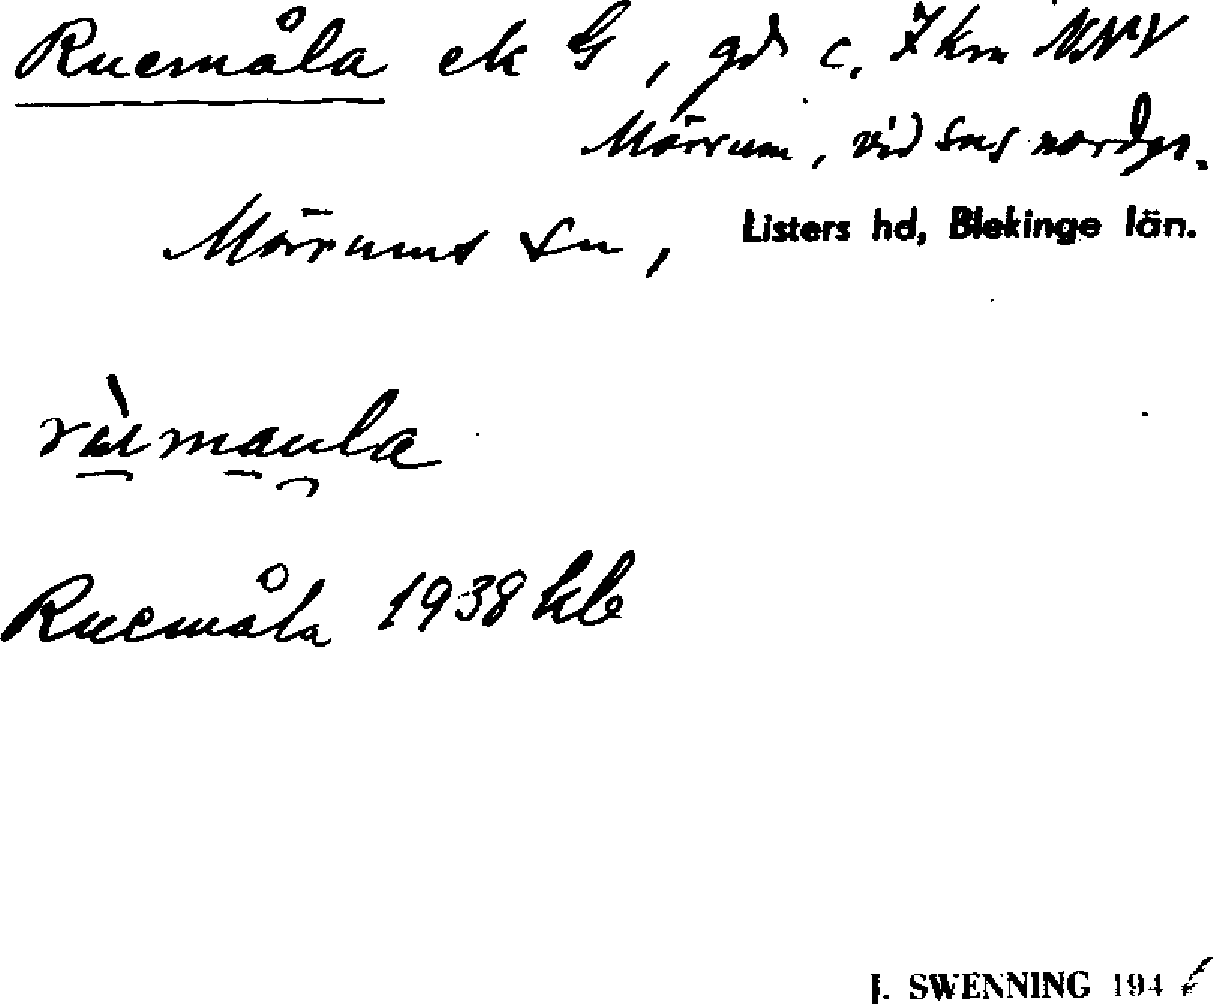 Ruemåla ek G, gd c. 7 km NNV
Mörrum, vid sns nordgr.
Mörrums sn, Listers hd, Blekinge län.
Ruemåla 1938 kb
J. SWENNING 194